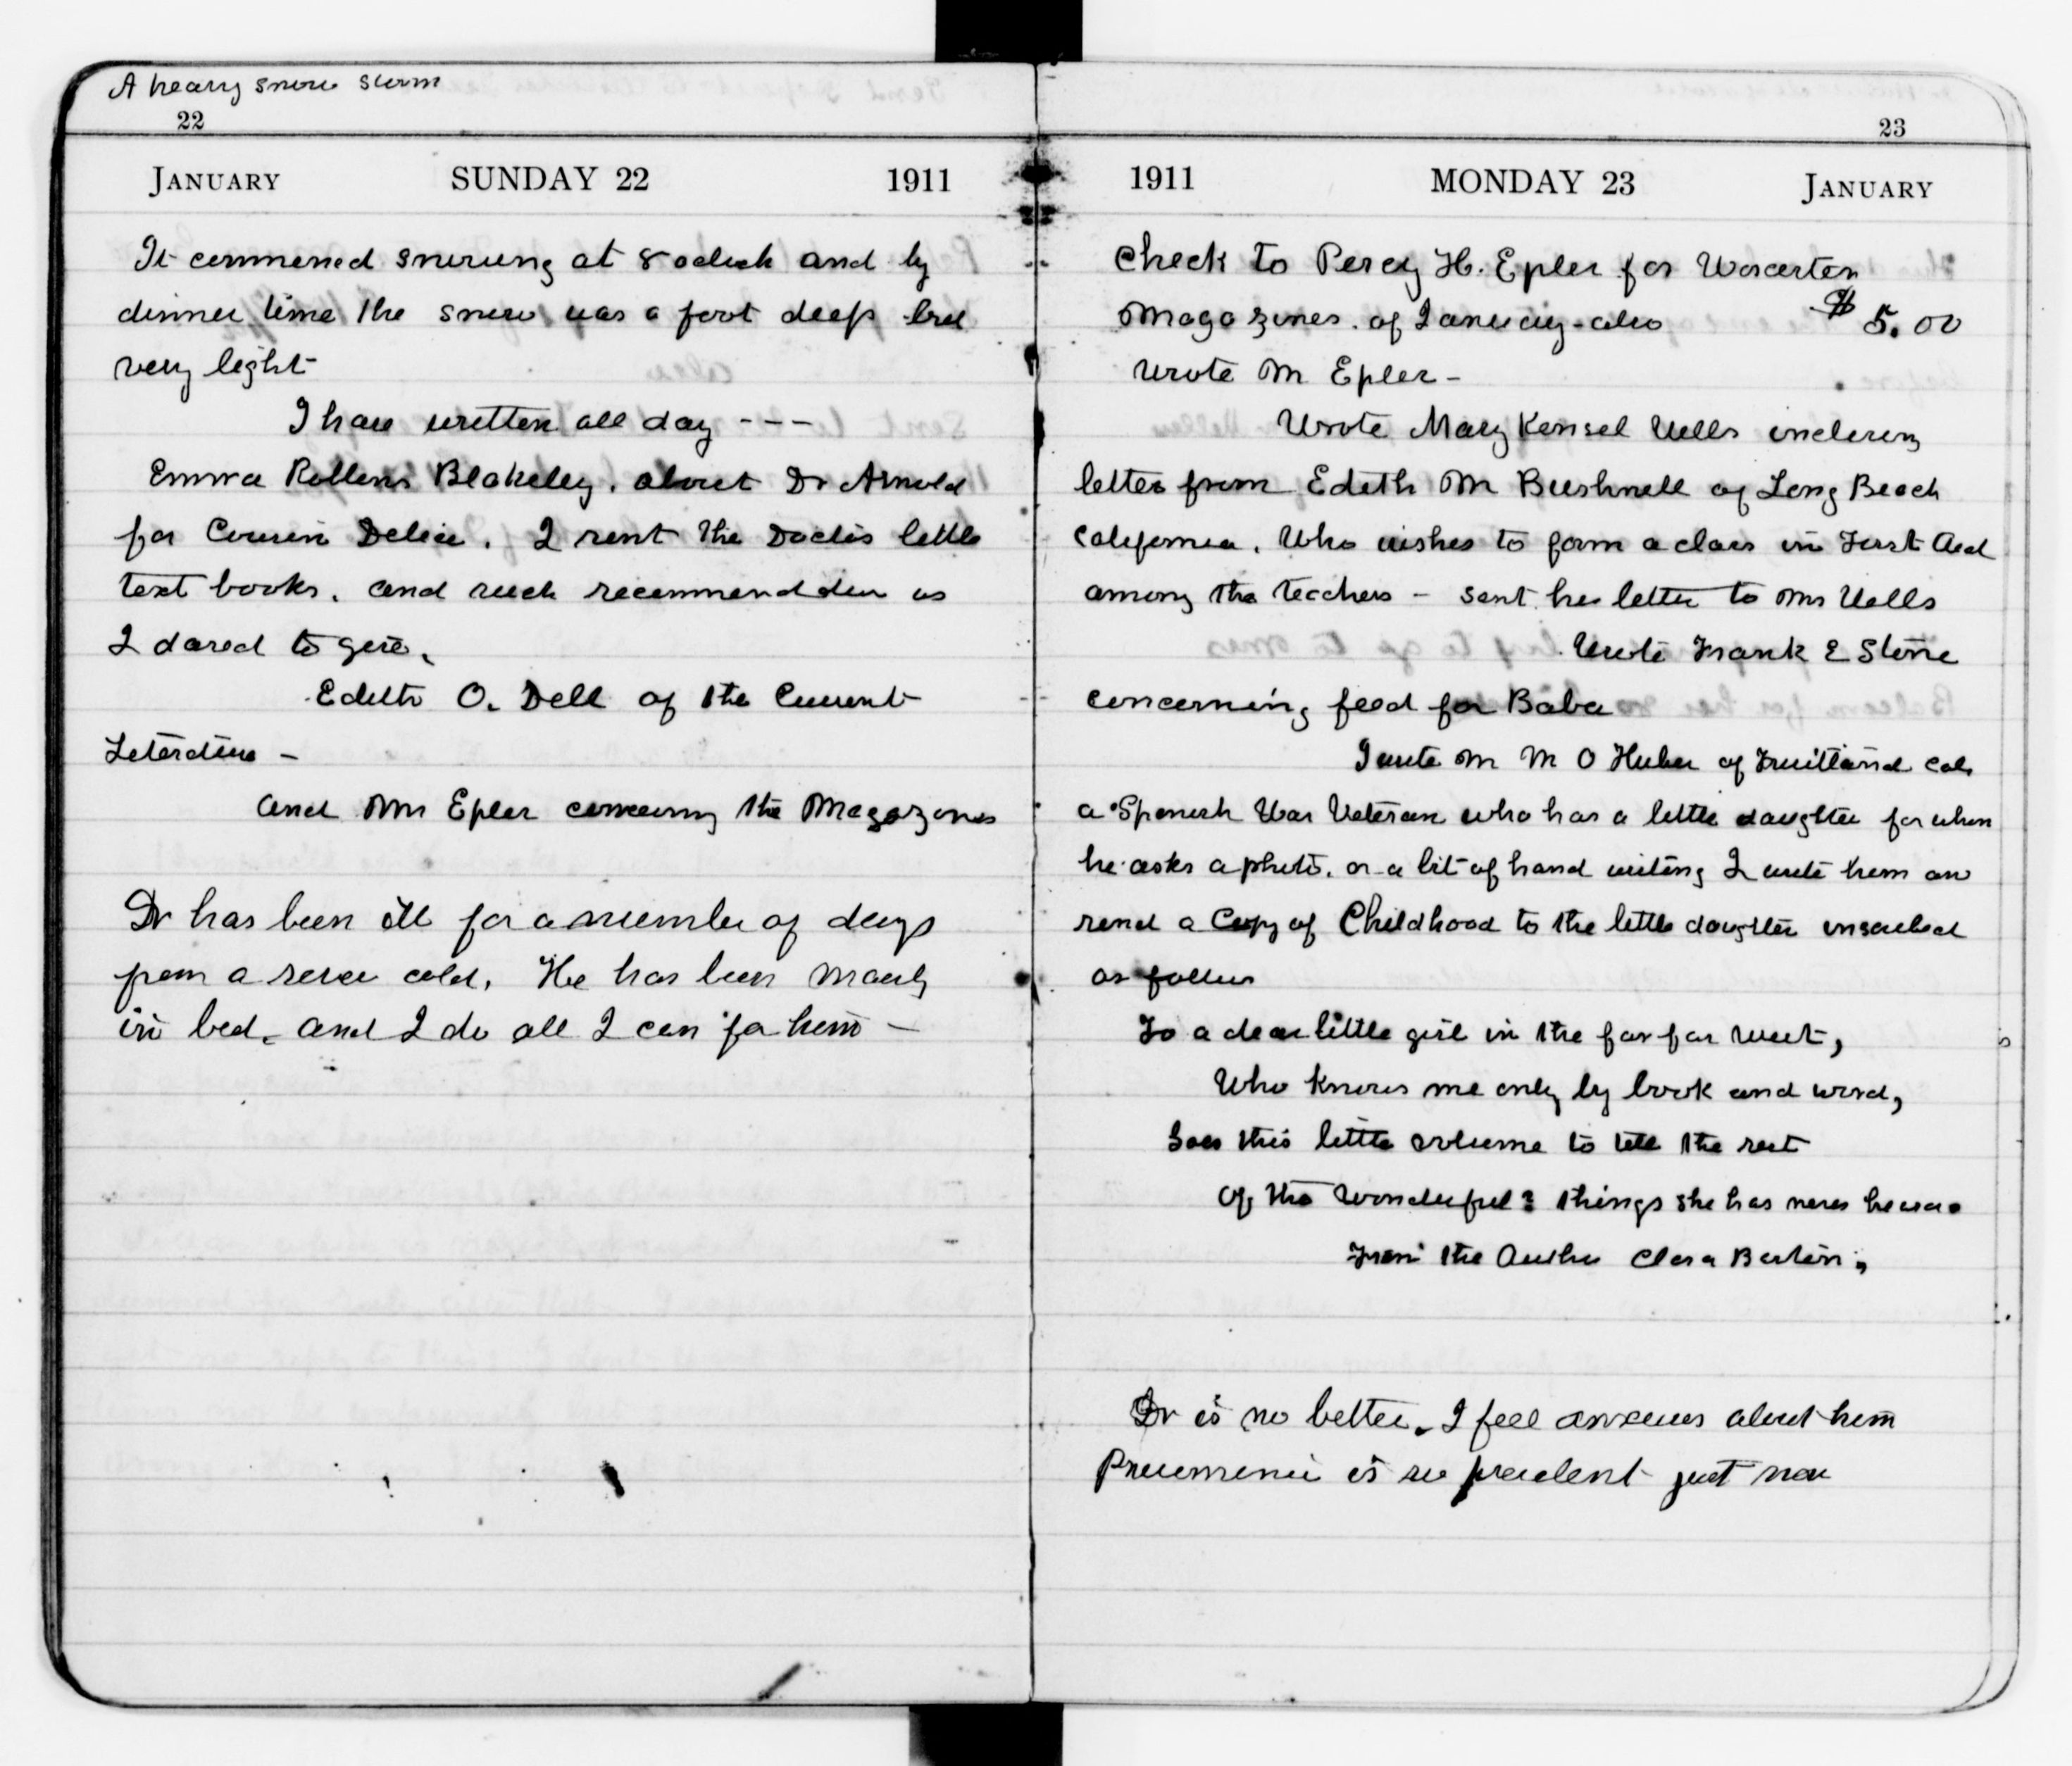 A heavy snow storm
22
JANUARY SUNDAY 22 1911
It commenced snowing at 8 oclock and by
dinner time the snow was a foot deep but
very light
I have written all day - - -
Emma Rollins Blakeley, about Dr Arnold
for Cousin Delia. I sent the Doctors little
text books, and such recommendation as
I dared to give.
Edith O. Dell of the Current
Literature -
and Mrs Epler concerning the Magazines
Dr has been ill for a number of days
from a severe cold. He has been mainly
in bed, and I do all I can for him -
23
1911 MONDAY 23 JANUARY
Check to Percy H. Epler for Worcester
Magazines of January - also $5.00
wrote Mr Epler -
Wrote Mary Kensel Wells inclosing
letter from Edith M Bushnell of Long Beach
California, who wishes to form a class in First Aid
among the teachers - sent her letter to Mrs Wells
Wrote Frank E Stone
concerning feed for Baba
I wrote Mr M O Huber of Fruitland Cal,
a Spanish War Veteran who has a little daughter for whom
he asks a photo, or a bit of hand writing I write him an
send a Copy of Childhood to the little daughter inscribed
as follows
To a dear little girl in the far far West,
Who knows me only by book and word,
Goes this little volume to tell the rest
Of the wonderful? things she has never heard.
From the Author Clara Barton,
Dr is no better. I feel anxious about him
Pneumonia is so prevalent just now